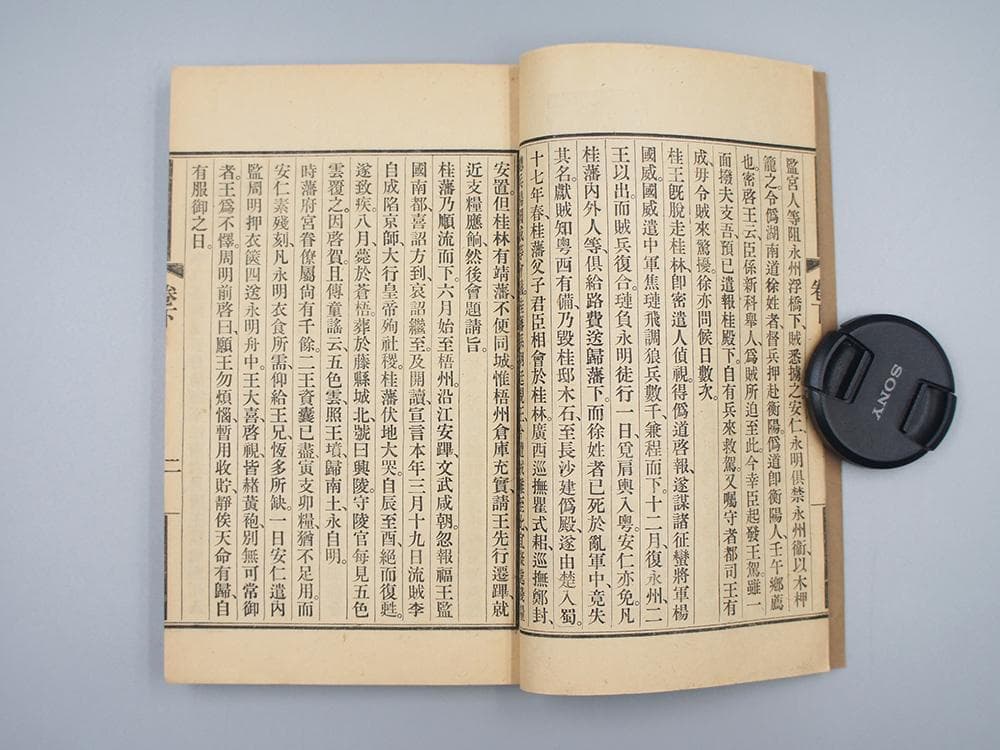 監宮人等阻永州浮橋下、賊悉擄之。安仁永明俱禁永州衞以木柙
籠之、令僞湖南道徐姓者督兵押赴衡陽。僞道卽衡陽人、壬午鄉薦
也。密啓王云、臣係新科舉人、爲賊所迫至此、今幸臣起發王駕、雖一
面撥夫支吾、預已遣報桂殿下、自有兵來救駕、又囑守者都司王有
成毋令賊來驚擾、徐亦問候日數次。
桂王旣脫走桂林、卽密遣人偵視、得僞道啓報、遂謀諸征蠻將軍楊
國威、國威遣中軍焦璉飛調狼兵數千、兼程而下。十二月、復永州、二
王以出。而賊兵復合、璉負永明徒行一日、覓肩輿入粵、安仁亦免。凡
桂藩內外人等、俱給路費送歸藩下、而徐姓者已死於亂軍中、竟失
其名。獻賊知粵西有備、乃毀桂邸木石、至長沙建僞殿、遂由楚入蜀。
十七年春、桂藩父子君臣相會於桂林。廣西巡撫瞿式耜、巡撫鄭封、
安置、但桂林有靖藩、不便同城、惟梧州倉庫充實、請王先行遷蹕、就
近支糧應餉、然後會題請旨。
桂藩乃順流而下、六月始至梧州、沿江安蹕、文武咸朝。忽報福王監
國南都、喜詔方到、哀詔繼至、及開讀、宣言本年三月十九日流賊李
自成陷京師、大行皇帝殉社稷。桂藩伏地大哭、自辰至酉、絕而復甦、
遂致疾、八月、薨於蒼梧、葬於藤縣城北、號曰興陵。守陵官每見五色
雲覆之、因啓賀、且傳童謠云、五色雲、照王墳、歸南土、永自明。
時藩府宮眷僚屬尙有千餘、二王資囊已盡、寅支卯糧、猶不足用。而
安仁素殘刻、凡永明衣食所需、仰給王兄、恆多所缺。一日安仁遣內
監周明押衣篋四送永明舟中、王大喜、啓視皆赭黃袍、別無可常御
者、王爲不懌。周明前啓曰、願王勿煩惱、暫用收貯、靜俟天命有歸、自
有服御之日。
卷下
卷下
二
SONY